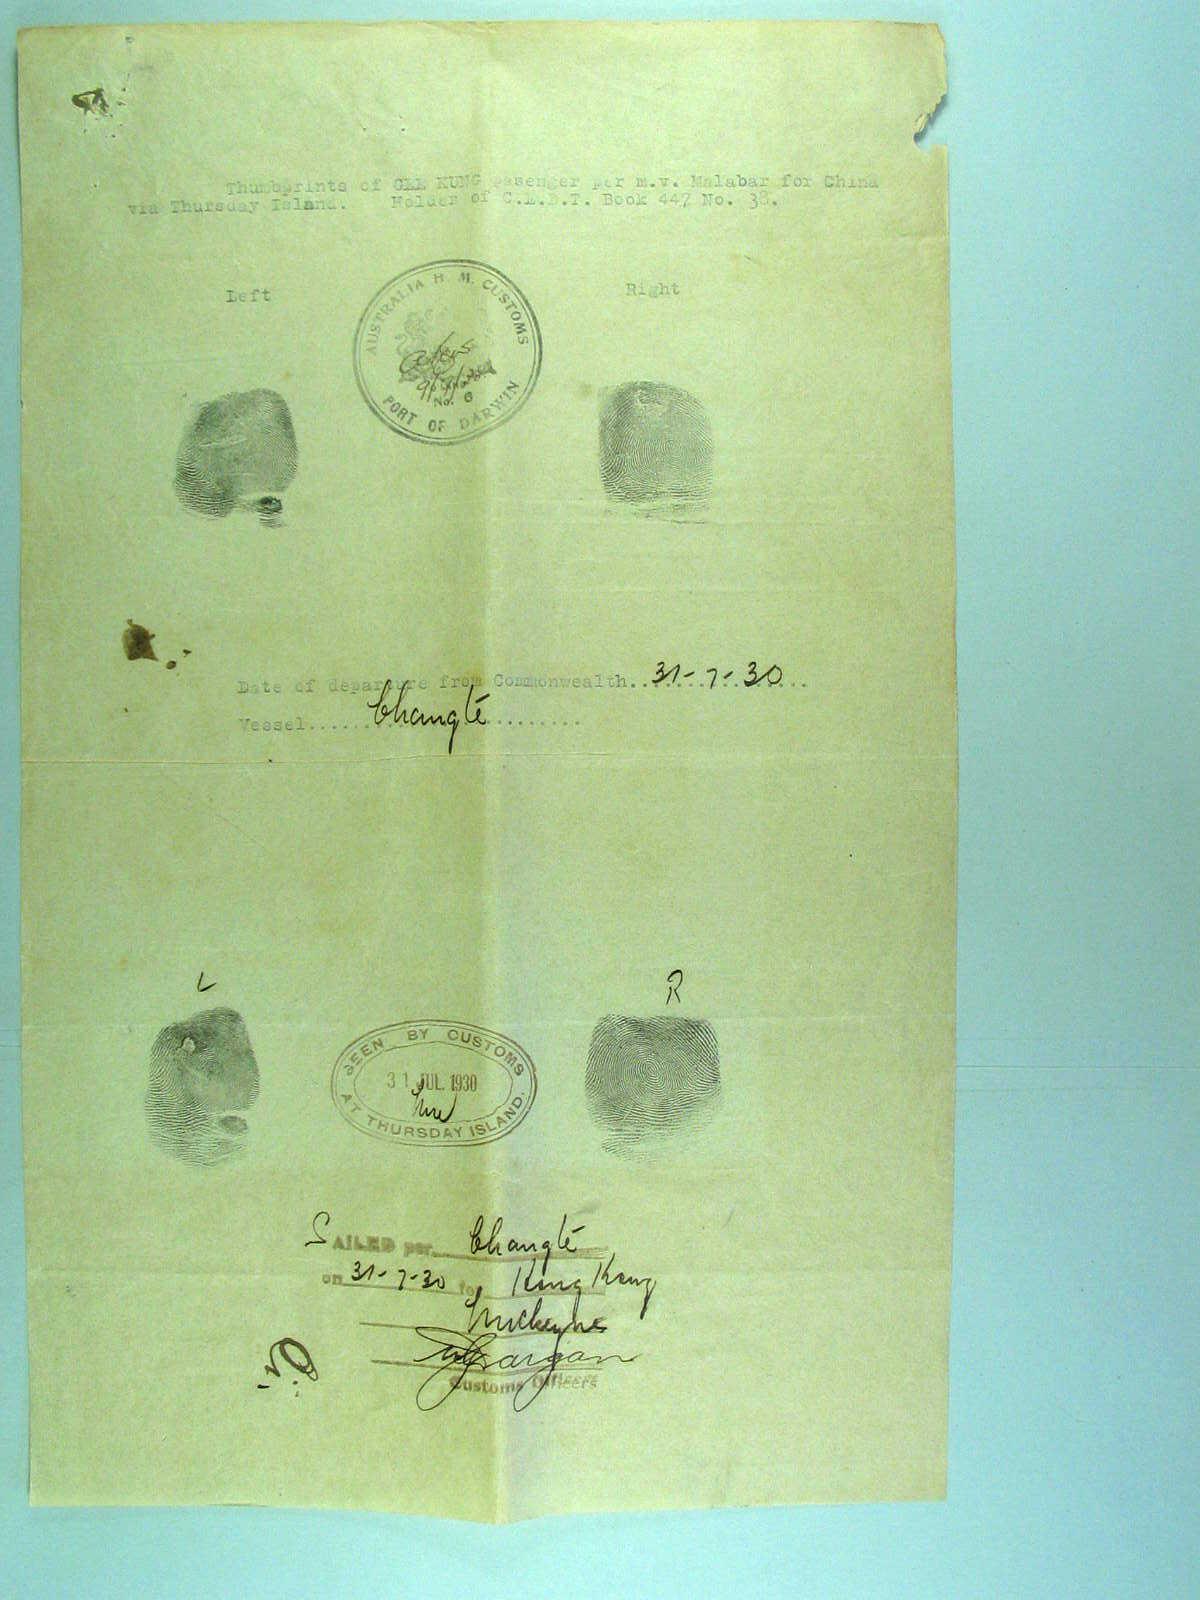 Thumbprints of GEE KUNG pasenger per m.v. Malabar for China
via Thursday Island. Holder of C.E.D.T. Book 447 No. 38.
Left
Right
AUSTRALIA H. M. CUSTOMS
No. 6
PORT OF DARWIN
Date of departure from Commonwealth. 31-7-30
Vessel...... Changte .........
L
R
SEEN BY CUSTOMS
31 JUL. 1930
AT THURSDAY ISLAND.
SAILED per Changte
on 31-7-30 to Hong Kong
Customs Officers